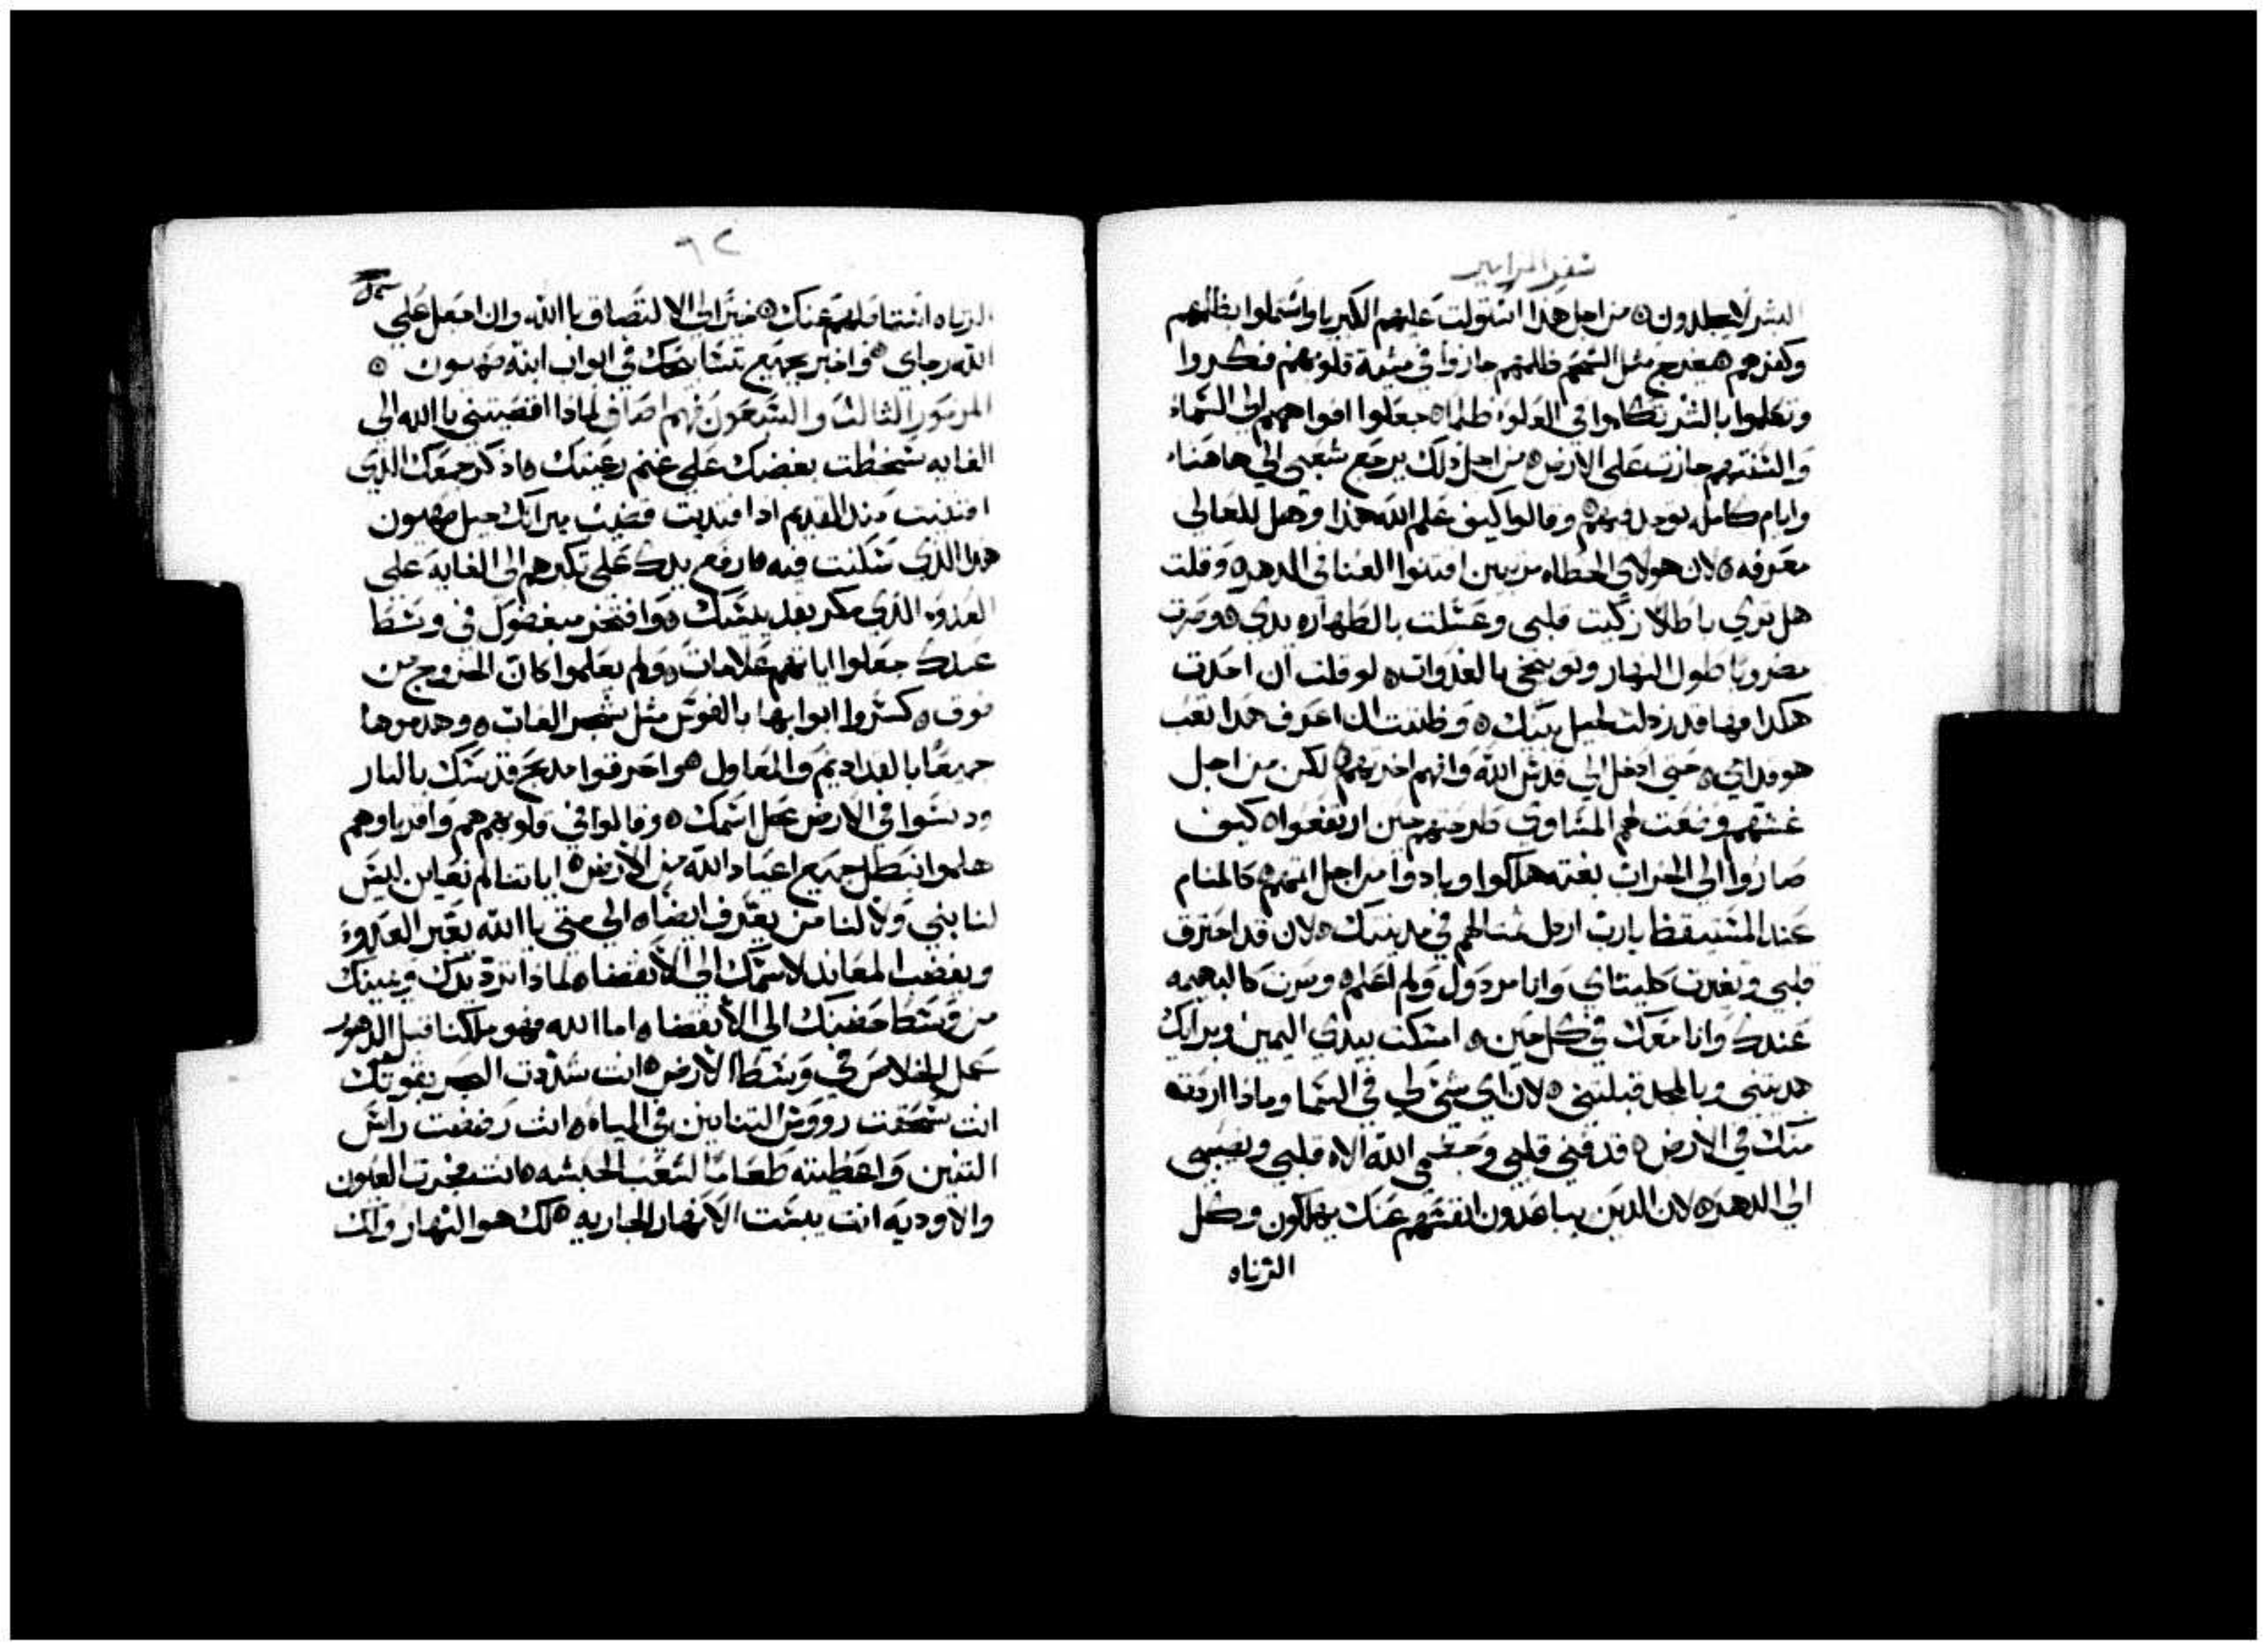 سفر المزامير
البشر لا يجلدون ه من اجل هذا استولت عليهم الكبريا واشتملوا بظلمهم
وكفرهم ه يخرج مثل الشحم ظلمهم جازوا في مشية قلوبهم فكروا
وتكلموا بالشر تكلموا في العلو ظلما ه جعلوا افواههم الى السماء
والسنتهم جازت على الارض ه من اجل ذلك يرجع شعبي الى هاهناء
وايام كامله توجد فيهم ه وقالوا كيف علم الله هذا وهل للعالى
معرفه ه لان هولاي الخطاه مزيين اقتنوا الغنا في الدهر ه وقلت
هل تري باطلا زكيت قلبى وغسلت بالطهاره يدي ه وصرت
مضروبا طول النهار وتوبيخي بالغدوات ه لو قلت ان احدث
هكدا فها قد زدلت لجيل بنيك ه وظننت ان اعرف هدا تعب
هو قدامي ه حتي ادخل الي قدس الله وافهم اخرتهم ه لكن من اجل
غشهم وضعت لهم المساوي طرحتهم حين ارتفعوا ه كيف
صاروا الي الخراب بغته هلكوا وبادوا من اجل اتمهم ه كالمنام
عند المستيقظ يارب اردل تمتالهم في مدينتك ه لان قد احترق
قلبي وتغيرت كليتاي وانا مردول ولم اعلم ه وصرت كالبهيمه
عندك وانا معك في كل حين ه امسكت بيدي اليمين وبرايك
هديتني وبالمجد قبلتني ه لان اي شي لي في السما وماذا اردته
منك في الارض ه قد فني قلبي ولحمي الله الاه قلبي ونصيبي
الي الدهر ه لان الدين يباعدون انفسهم عنك يهلكون وكل
الزناه
٦٢
الزناه افنتا قلبهم عنك ه خير لي الالتصاق بالله وان اجعل علي
الله رجاي ه واخبر بجميع تسابيحك في ابواب ابنة صهيون ه
المزمور الثالث والسبعون فهم اصاف لماذا اقصيتني يا الله الى
الغايه سخطت بغضبك علي غنم رعيتك ه اذكر جمعك الذي
اقتنيت منذ القديم اذ افتديت قضيب ميراتك جبل صهيون
هدا الذي سكنت فيه ه ارفع يدك علي تكبرهم الى الغايه على
العدو الذي مكر بقديسك ه وافتخر مبغضوك في وسط
عيدك جعلوا اياتهم علامات ه ولم يعلموا كان الخروج من
فوق ه كسروا ابوابها بالفوس مثل شجر الغاب ه وهدموها
جميعا بالقداديم والمعاول ه واحرقوا مدبح قدسك بالنار
ودنسوا في الارض محل اسمك ه وقالوا في قلوبهم هم واقرباوهم
هلموا نبطل جميع اعياد الله من الارض ه اياتنا لم نعاين ليس
لنا نبي ولا لنا من يعترف ايضا ه الي متي يا الله يعير العدو
ويغضب المعاند لاسمك الي الانقضا ه لماذا ترد يدك ويمينك
من وسط حضنك الي الانقضا ه اما الله فهو ملكنا قبل الدهور
عمل الخلاص في وسط الارض ه انت شددت البحر بقوتك
انت سحقت رووس التنانين في المياه ه انت رضضت راس
التنين واعطيته طعاما لشعب الحبشه ه انت فجرت العيون
والاوديه انت يبست الانهار الجاريه ه لك هو النهار ولك